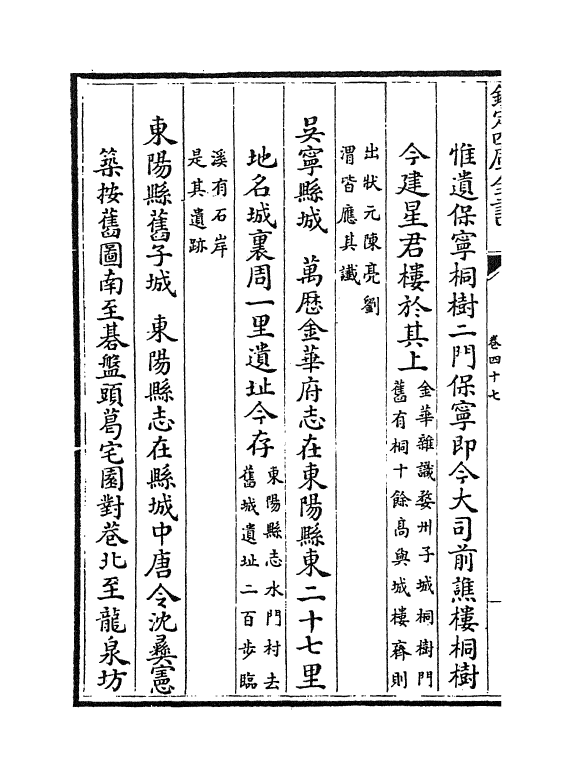 欽定四庫全書
卷四十七
惟遺保寧桐樹二門保寧即今大司前譙樓桐樹
今建星君樓於其上金華雜識婺州子城桐樹門
舊有桐十餘高與城樓齊則
出狀元陳亮劉
渭皆應其䜟
吳寧縣城 萬歷金華府志在東陽縣東二十七里
地名城裏周一里遺址今存東陽縣志水門村去
舊城遺址二百步臨
溪有石岸
是其遺跡
東陽縣舊子城 東陽縣志在縣城中唐令沈彞憲
築按舊圖南至碁盤頭葛宅園對巷北至龍泉坊